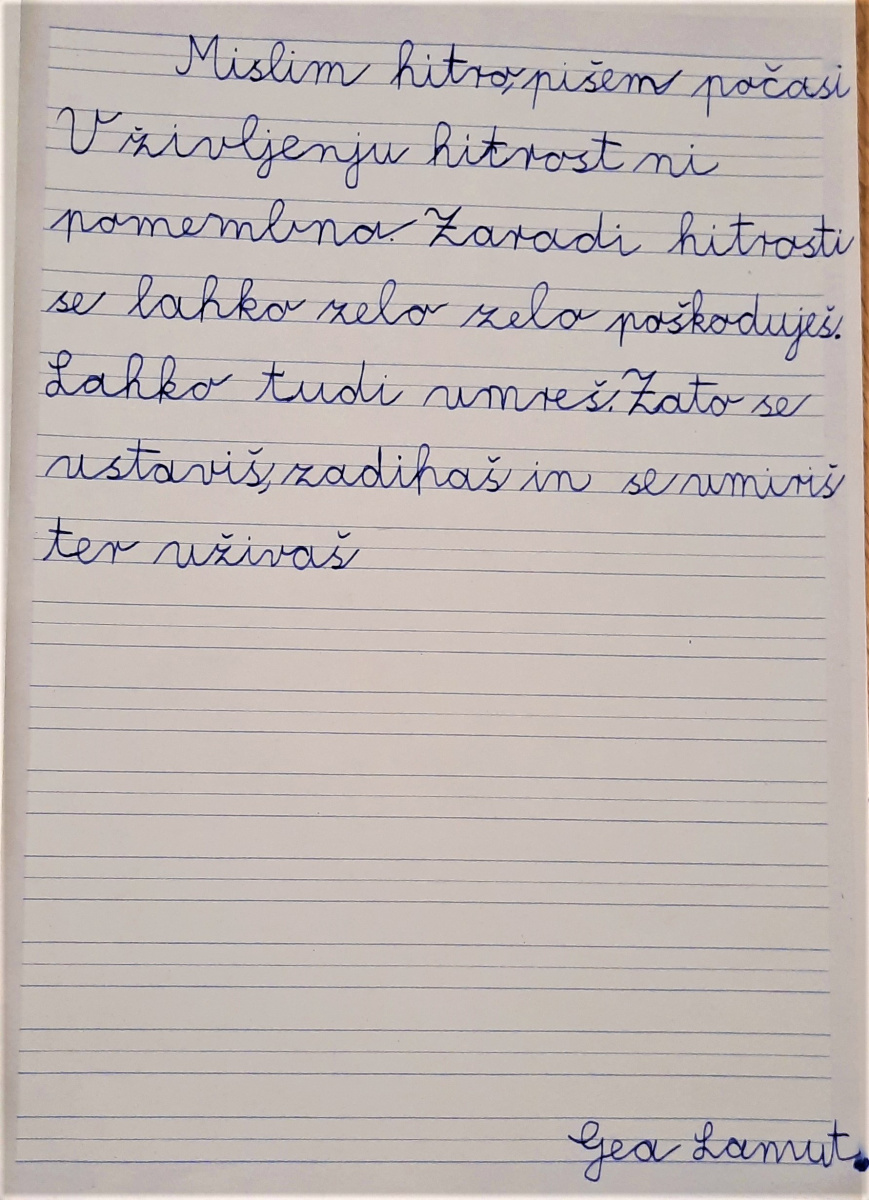 Mislim hitro, pišem počasi
V življenju hitrost ni
pomembna. Zaradi hitrosti
se lahko zelo zelo poškoduješ.
Lahko tudi umreš. Zato se
ustaviš, zadihaš in se umiriš
ter uživaš
Gea Lamut.